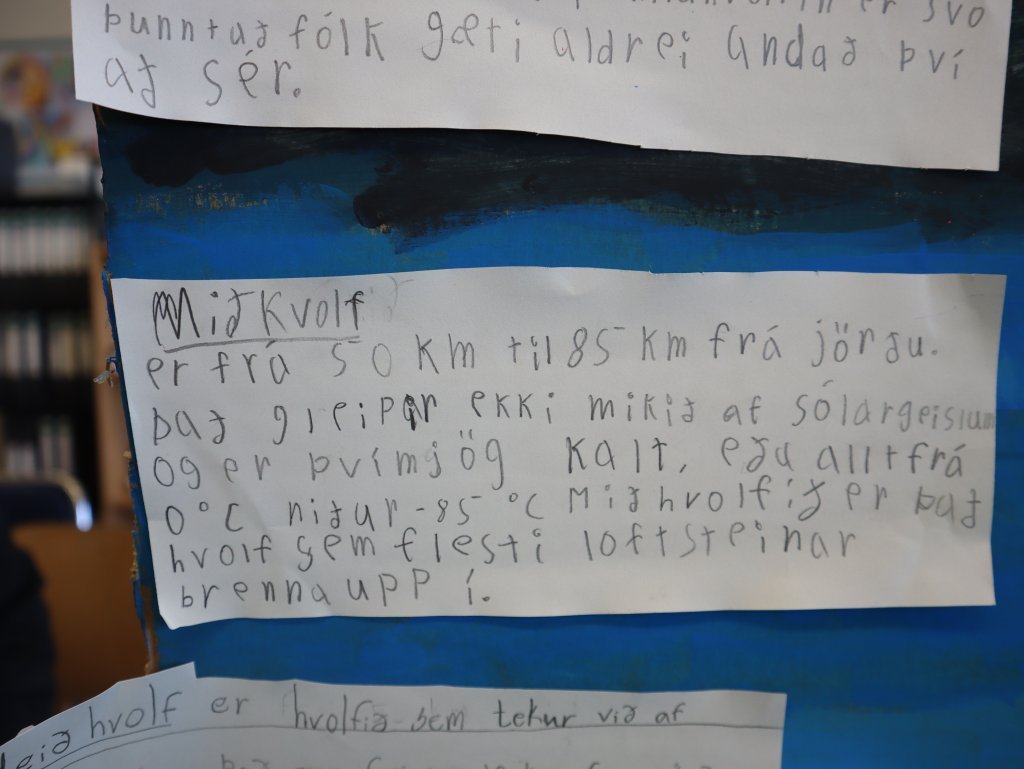 er svo
þunnt að fólk gæti aldrei andað því
að sér.
Miðkvolf
er frá 50 km til 85 km frá jörðu.
það gleipir ekki mikið af sólargeislum
og er því mjög kalt, eða allt frá
0°C niður -85 °C Miðhvolfið er það
hvolf sem flesti loftsteinar
brenna upp í.
hvolf er hvolfið sem tekur við af